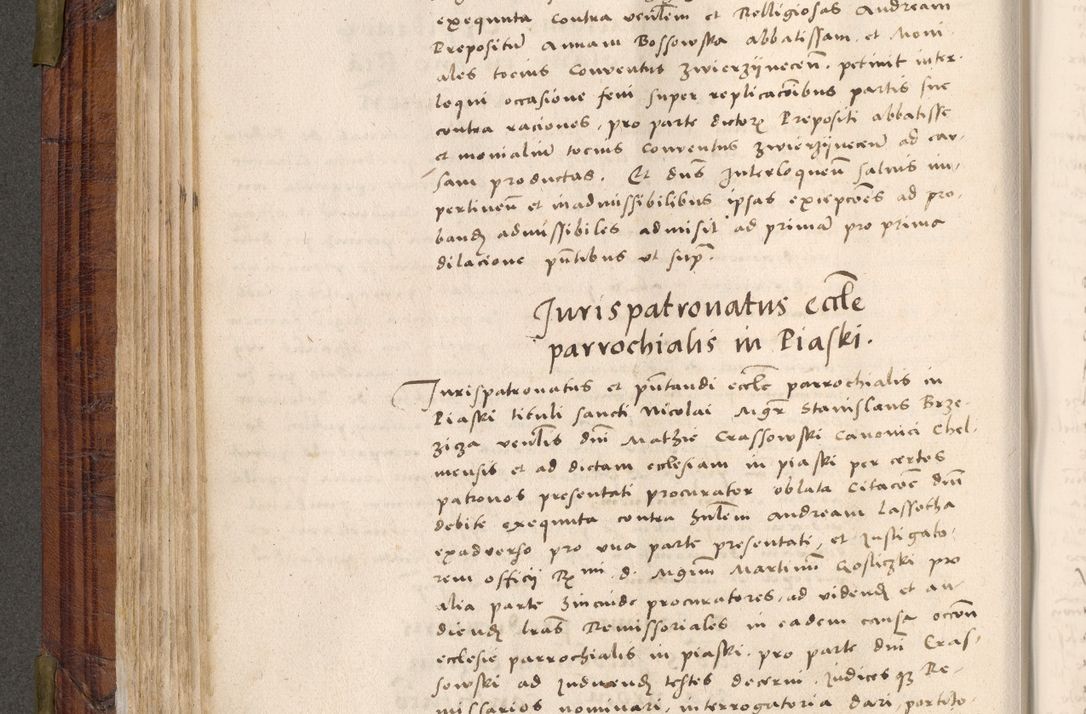 exequuta contra venlem et Relligiosas Andream
Prepositu Annam Bossowska abbatissam et Moni
ales tocius Conventus Zwierzijnecen. petivit inter-
loqui occasione feni super replicacoibus partis sue
contra raciones, pro parte dictor Prepositi abbatisse
et monialiu tocius Conventus Zwierzijnecen ad cau-
sam productas. Et dns Interloquen salvis im-
pertinen et inadmissibilibus ipsas excepcoes ad pro-
band admissibiles admisit ad prima pro prima
dilacione pntibus ut sup.
Jurispatronatus eccle
parrochialis in Piaski.
Jurispatronatus et pntandi eccle parrochialis in
Piaski tituli sancti Nicolai Mgr Stanislaus Brze-
ziza venlis dni Mathie Crassowski Canonici Chel-
mensis et ad dictam ecclesiam in piaski per certos
patronos presentati procurator oblata Citacoe dni
debite exequuta contra Andream Lassotha
exadverso pro una parte presentati, et Instigato-
rem officij Rmi d. Mgrm Martinu Gosliczki pro
alia parte procuratores, ad vidend et au-
diend lras Remissoriales in eadem causa occon
ecclesie parrochialis in piaski pro parte dni Cras-
sowski ad Inducend testes decerni, Judicesq Re-
missarios nominari, interrogatoria dari,